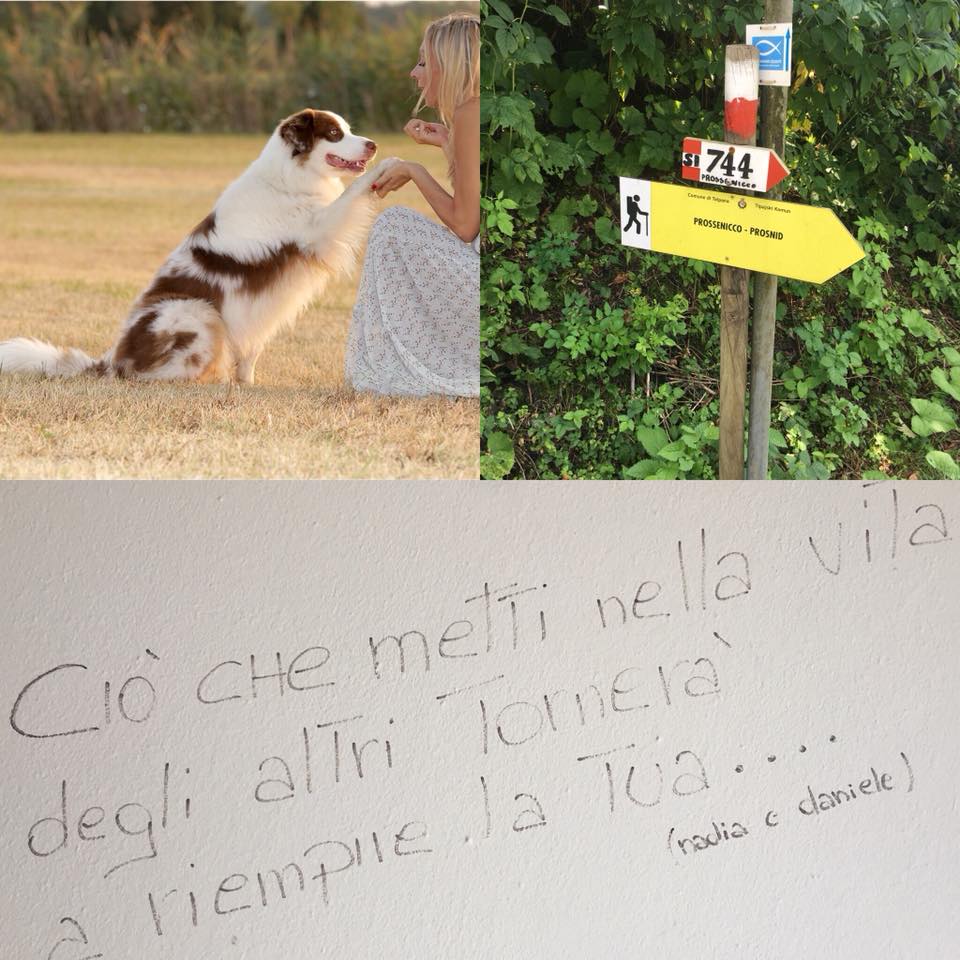 SI 744
PROSSENICCO
Comune di Taipana Tipajski Komun
PROSSENICCO - PROSNID
Ciò CHe metti nella vita
degli altri Tornerà
a riempire la Tua....
(nadia e daniele)